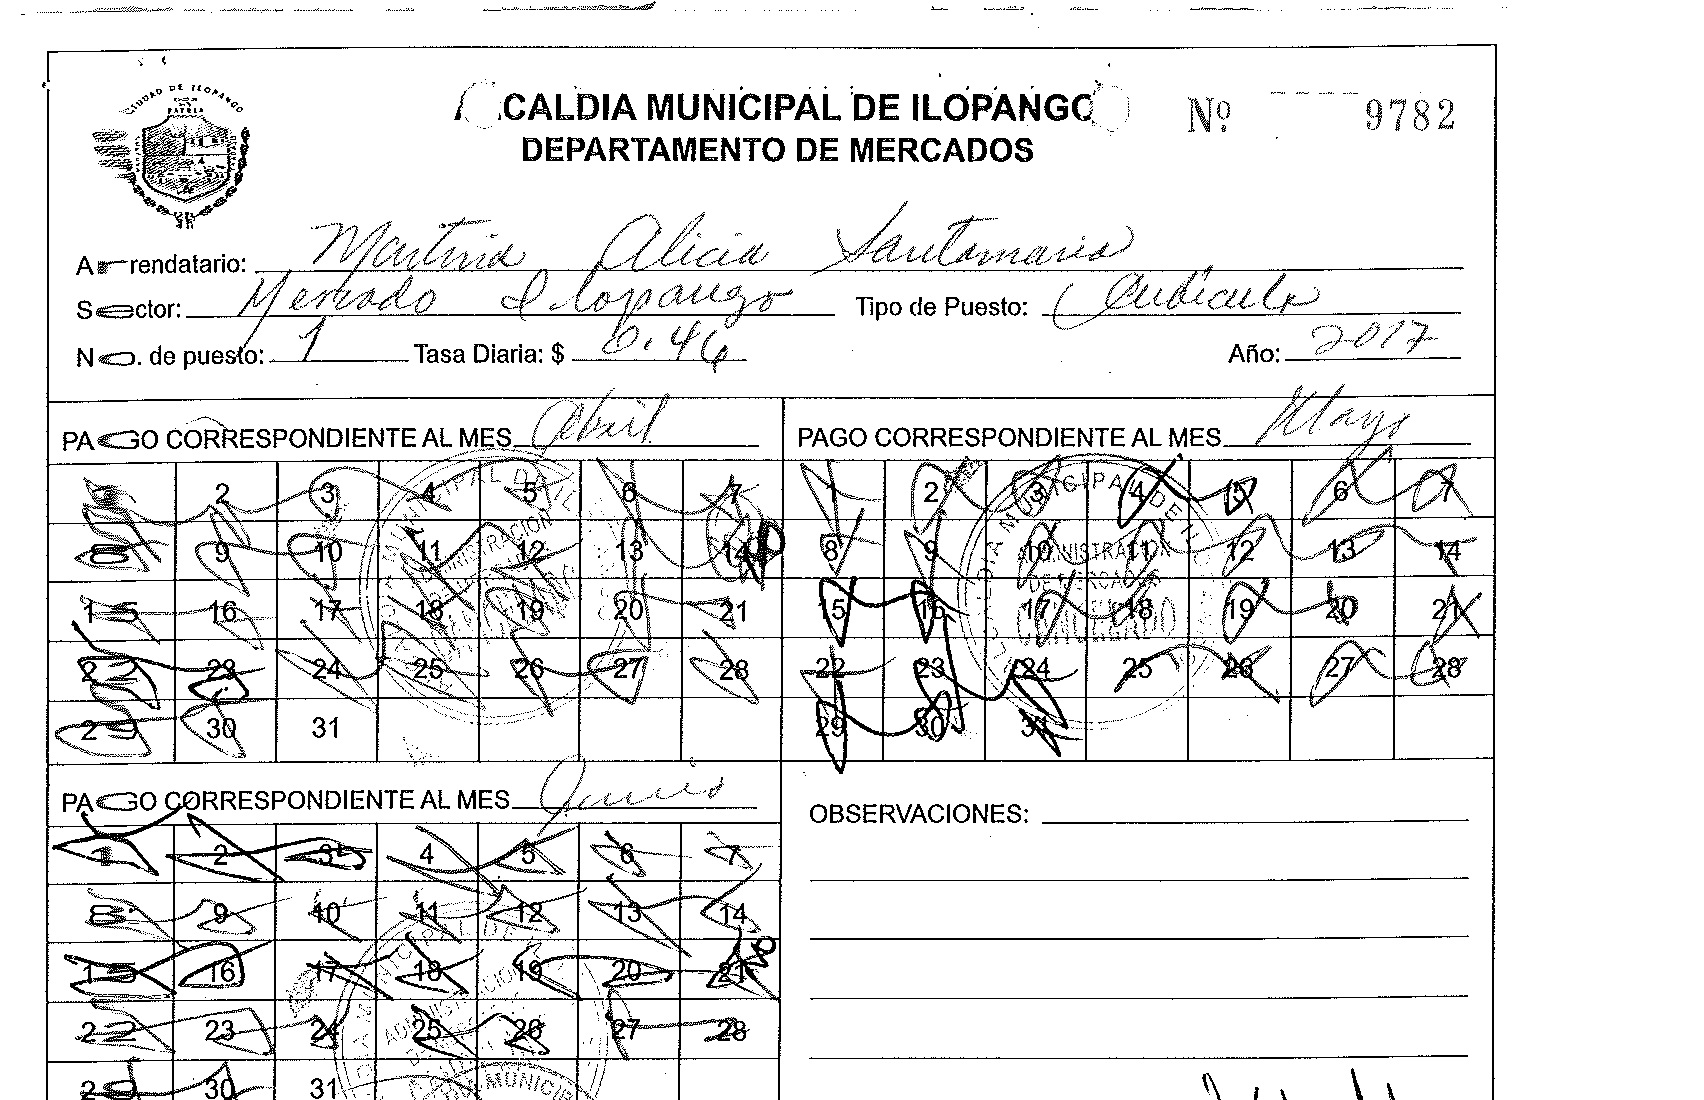 CIUDAD DE ILOPANGO
PATRIA
ALCALDIA MUNICIPAL DE ILOPANGO
Nº 9782
DEPARTAMENTO DE MERCADOS
Arrendatario: Martina Alicia Santamaria
Sector: Mercado Ilopango Tipo de Puesto: Cubiculo
No. de puesto: 1 Tasa Diaria: $ 0.46 Año: 2017
PAGO CORRESPONDIENTE AL MES Abril
1 2 3 4 5 6 7
8 9 10 11 12 13 14
15 16 17 18 19 20 21
22 23 24 25 26 27 28
29 30 31
PAGO CORRESPONDIENTE AL MES Mayo
1 2 3 4 5 6 7
8 9 10 11 12 13 14
15 16 17 18 19 20 21
22 23 24 25 26 27 28
29 30 31
ADMINISTRACION
DE MERCADOS
CANCELADO
PAGO CORRESPONDIENTE AL MES Junio
1 2 3 4 5 6 7
8 9 10 11 12 13 14
15 16 17 18 19 20 21
22 23 24 25 26 27 28
29 30 31
ADMINISTRACION
OBSERVACIONES: